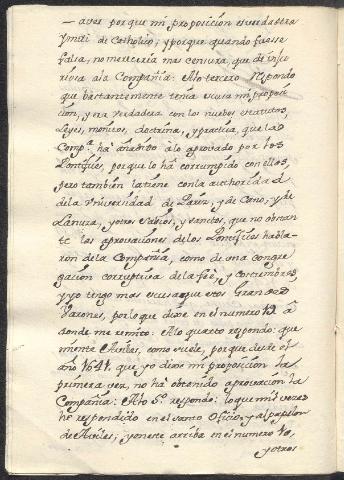 — aver porque mi proposicion es verdadera
y mui de Catholico, y porque quando fuesse
falsa, no mereceria mas censura, que de injuriosa
a la Compañia: Alo tercero respondo
que bastantemente tenia escusa mi proposicion,
y era verdadera con los nuebos estatutos,
Leyes, monitos, doctrina, y practica, que la
Comp.ª ha añadido a lo aprovado por los
Pontifices, porque lo há corrompido con ellos,
pero tambien la tiene con la authoridad
de la Vniversidad de Paris, y de Cano, y de
Lanuza, y otros Sabios, y Santos, que no obstante
las aprovaciones de los Pontifices hablaron
de la Compañia, como de una congregacion
corruptiva de la feè, y costumbres
y yo tengo mas escusa que estos Grandes
Varones, por lo que dixe en el numero 12 à
donde me remito: Alo quarto respondo: que
miente Aviles, como suele, porque desde el
año 1641. que yo dixe mi proposicion la
primera vez, no há obtenido aprovacion la
Compañia: Alo 5.º respondo: lo que mil vezes
he respondido en el Santo Oficio, y al papelon
de Aviles; y en este arriba en el numero 10,
y otros